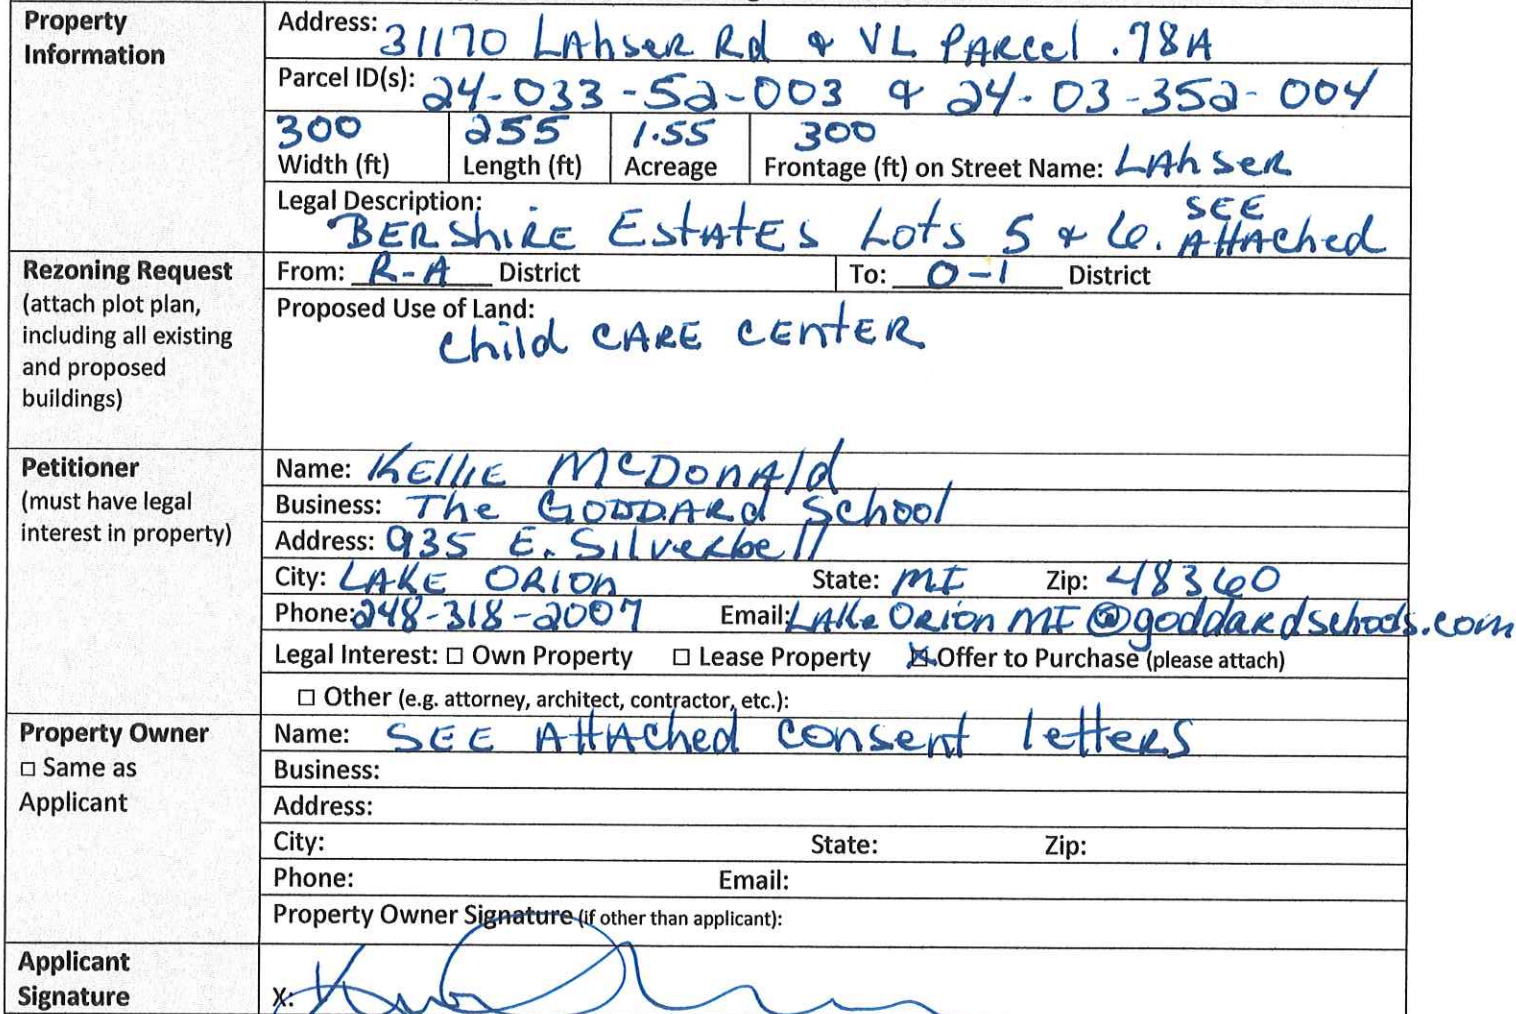 Property Information
Address: 31170 Lahser Rd & VL PARcel .78A
Parcel ID(s): 24-033-52-003 & 24-03-352-004
300 255 1.55 300
Width (ft) Length (ft) Acreage Frontage (ft) on Street Name: LAhseR
Legal Description: BERShiRE EstAtES Lots 5 & 6. SEE AttAched
Rezoning Request
(attach plot plan,
including all existing
and proposed
buildings)
From: R-A District To: O-1 District
Proposed Use of Land:
child CARE CENtER
Petitioner
(must have legal
interest in property)
Name: KEllIE McDonAld
Business: The GODDARd School
Address: 935 E. Silverbell
City: LAKE ORIOn State: MI Zip: 48360
Phone: 248-318-2007 Email: LAKe Orion MI @goddaRdschools.com
Legal Interest: ☐ Own Property ☐ Lease Property ☒ Offer to Purchase (please attach)
☐ Other (e.g. attorney, architect, contractor, etc.):
Property Owner
☐ Same as
Applicant
Name: SEE AttAched consent letteRS
Business:
Address:
City: State: Zip:
Phone: Email:
Property Owner Signature (if other than applicant):
Applicant
Signature
X: